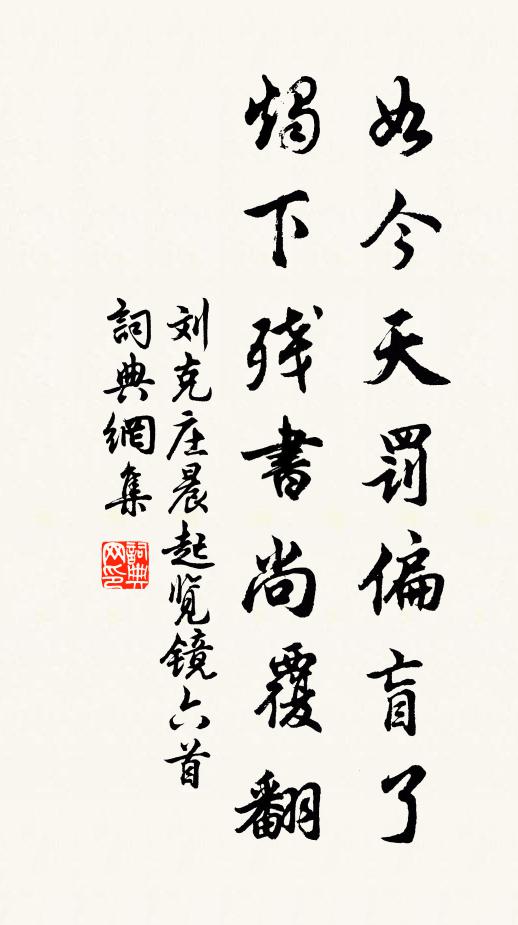 如今天罰偏盲了
燭下残書尚覆翻
刘克庄晨起览镜六首
詞典網集
詞典网印